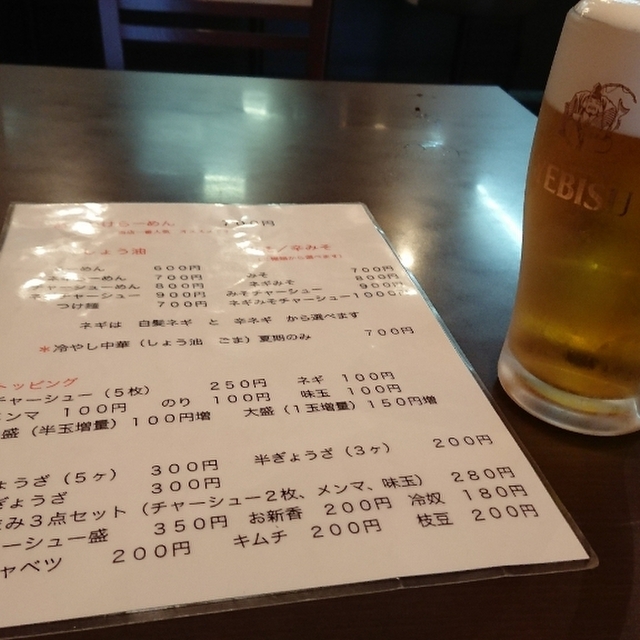 らーめん 円
しょう油 ／辛みそ
めん 600円 みそ 700円
700円 ネギみそ 800円
チャーシューめん 800円 みそチャーシュー 900円
チャーシュー 900円 ネギみそチャーシュー 1000
つけ麺 700円
ネギは 白髪ネギ と 辛ネギ から選べます
＊冷やし中華（しょう油 ごま）夏期のみ 700円
トッピング
チャーシュー（5枚） 250円 ネギ 100円
メンマ 100円 のり 100円 味玉 100円
盛（半玉増量）100円増 大盛（1玉増量）150円増
ょうざ（5ヶ） 300円 半ぎょうざ（3ヶ） 200円
ぎょうざ 300円
み3点セット（チャーシュー2枚、メンマ、味玉） 280円
ーシュー盛 350円 お新香 200円 冷奴 180円
ャベツ 200円 キムチ 200円 枝豆 200円
EBISU